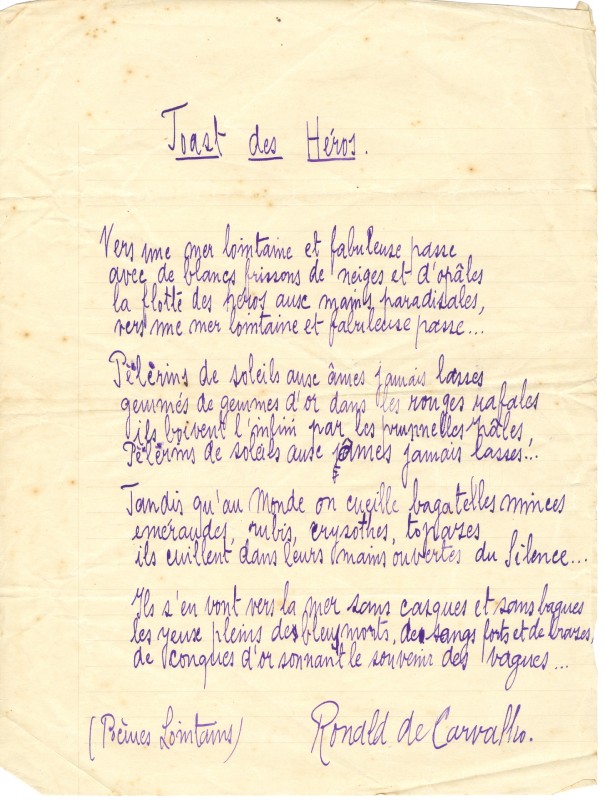 Toast des Héros.
Vers une mer lointaine et fabuleuse passe
avec de blancs frissons de neiges et d'opâles
la flotte des héros aux mains paradisales,
vers une mer lointaine et fabuleuse passe...
Pèlèrins de soleils aux âmes jamais lasses
gemmés de gemmes d'or dans les rouges rafales
ils boivent l'infini par les prupnelles pâles,
Pèlèrins de soleils aux âmes jamais lasses...
Tandis qu'au Monde on cueille bagatelles minces
emeraudes, rubis, crysothes, topazes
ils cuillent dans leurs mains ouvertes du Silence...
Ils s'en vont vers la mer sans casques et sans bagues
les yeux pleins de bleus morts, de sangs forts et de brazes,
de conques d'or sonnant le souvenir des vagues...
(Poèmes Lointains) Ronald de Carvalho.